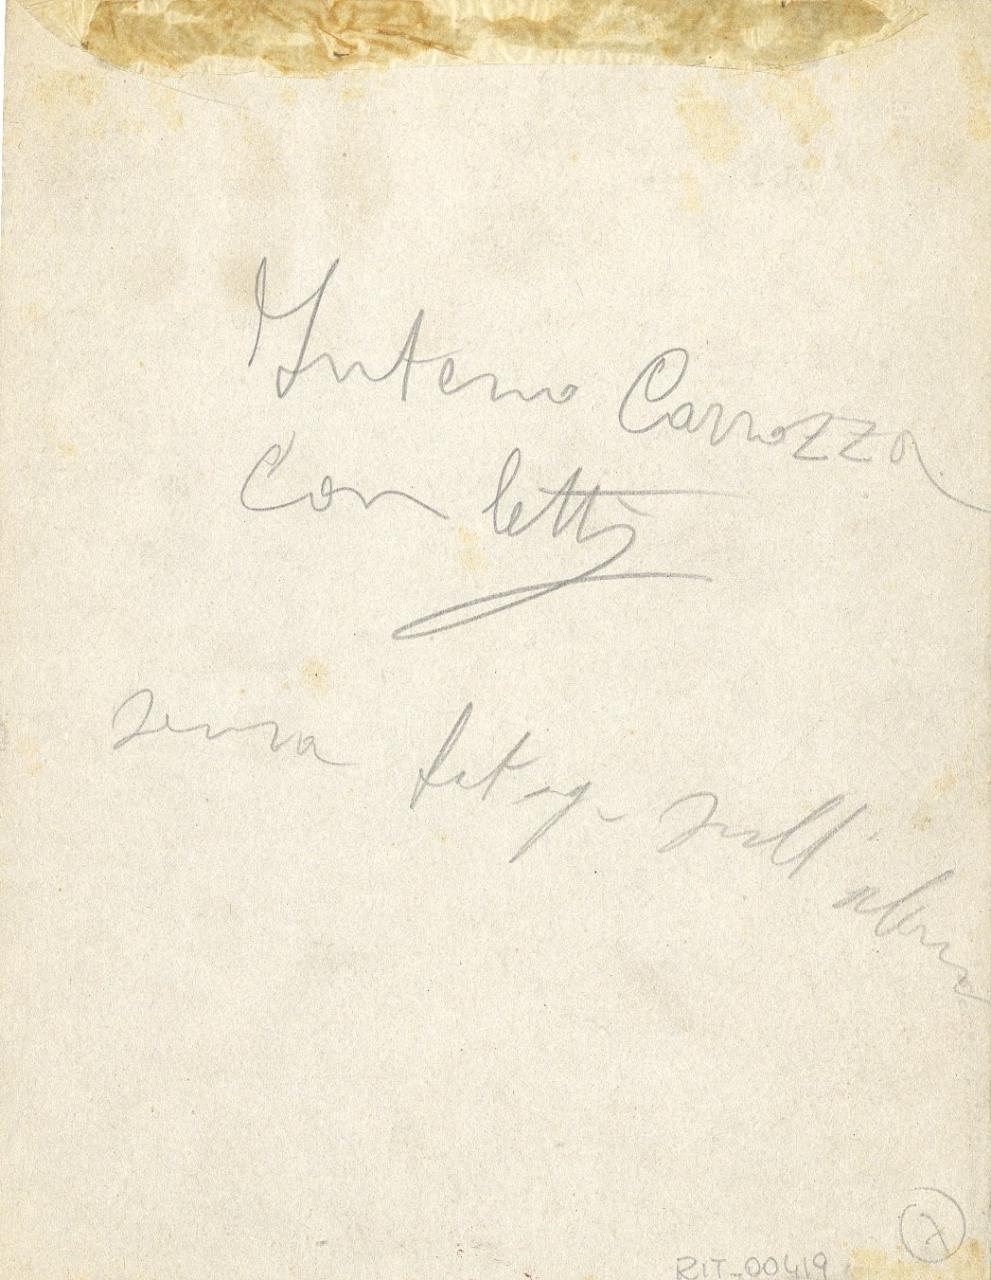 Interno Carrozza
Con letti
senza fotogr sull'album
7
RIT-00419